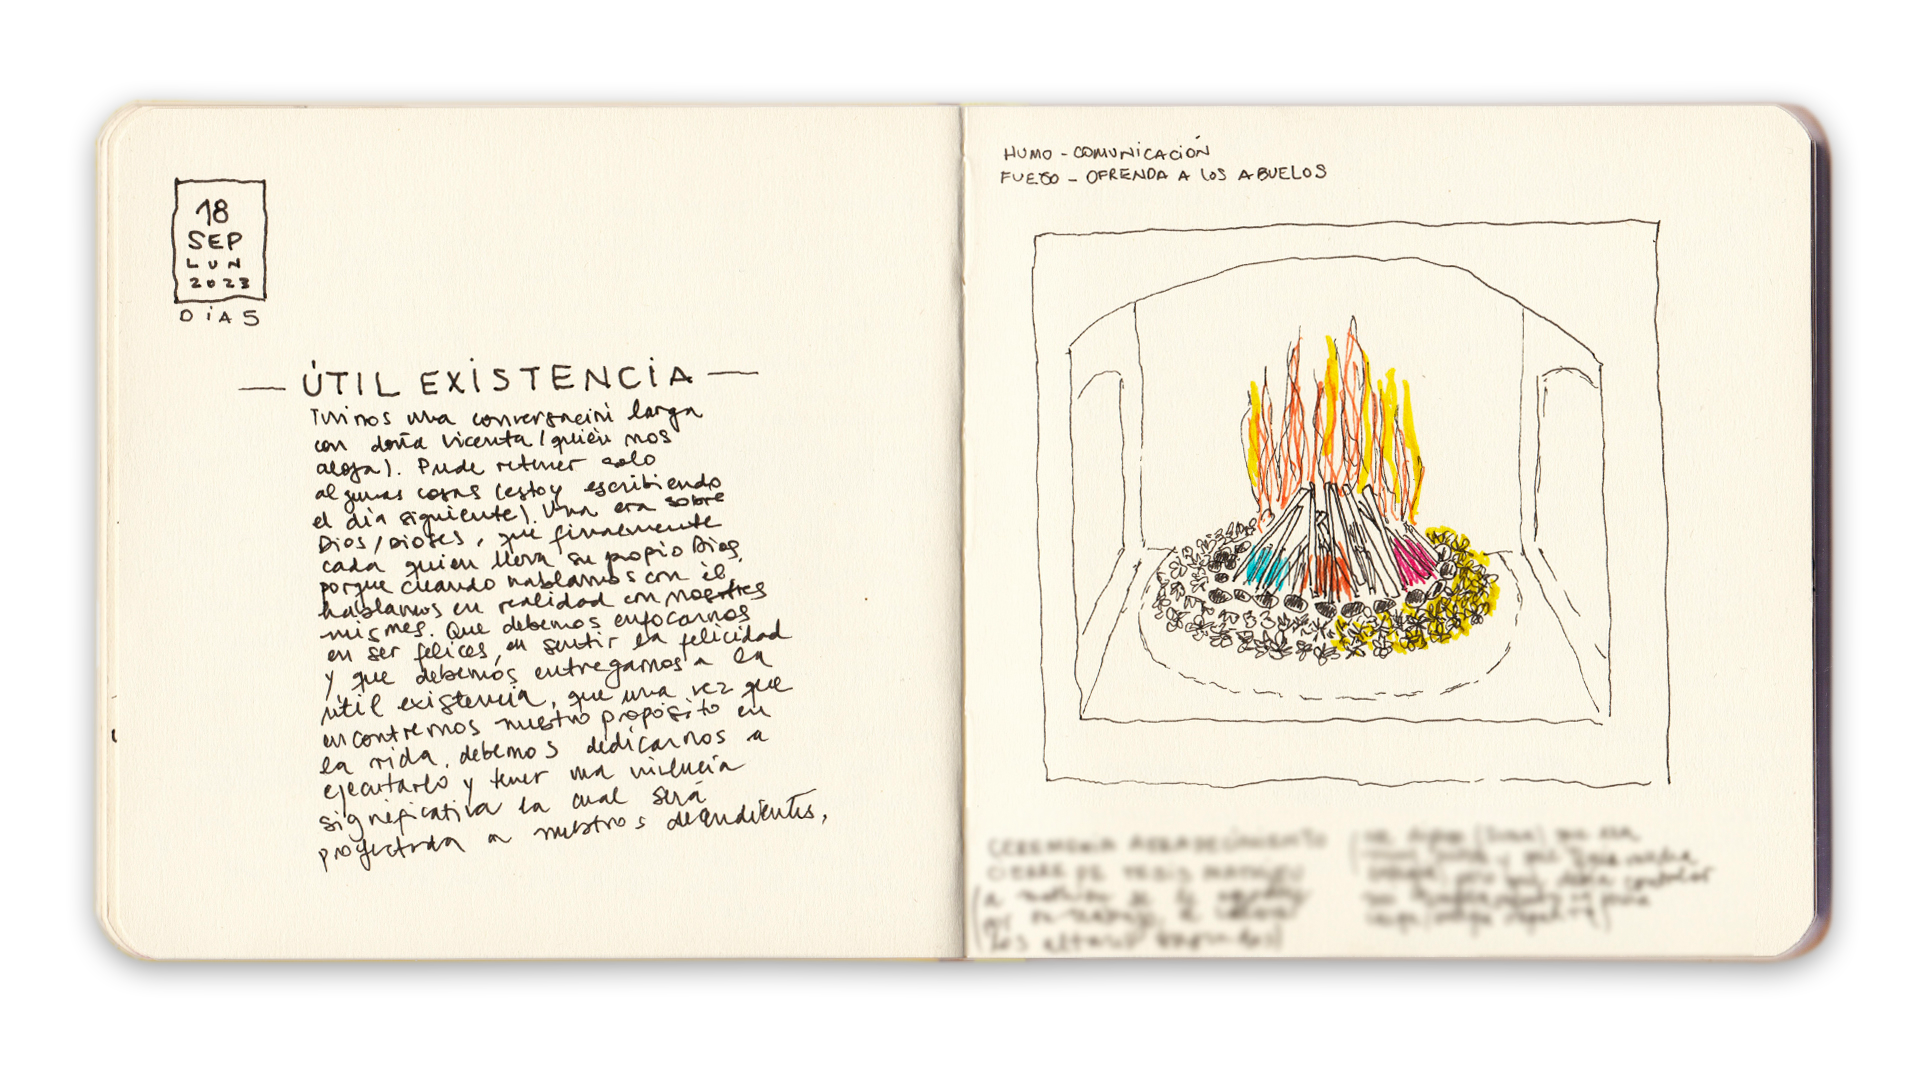 18
SEP
LUN
2023
DÍA 5
— ÚTIL EXISTENCIA —
Tuvimos una conversación larga
con doña Vicenta (quién nos
aloja). Pude retener solo
algunas cosas (estoy escribiendo
el día siguiente). Una era sobre
Dios/Dioses, que finalmente
cada quien lleva su propio Dios,
porque cuando hablamos con él,
hablamos en realidad con nosotros
mismos. Que debemos enfocarnos
en ser felices, en sentir la felicidad
y que debemos entregarnos a la
útil existencia, que una vez que
encontremos nuestro propósito en
la vida, debemos dedicarnos a
ejecutarlo y tener una vivencia
significativa la cual será
proyectada a nuestros descendientes,
HUMO - COMUNICACIÓN
FUEGO - OFRENDA A LOS ABUELOS
CEREMONIA AGRADECIMIENTO